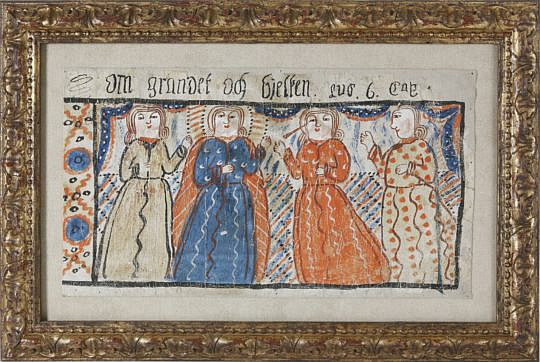 Om grandet och bjelken. Luc 6. Cap.